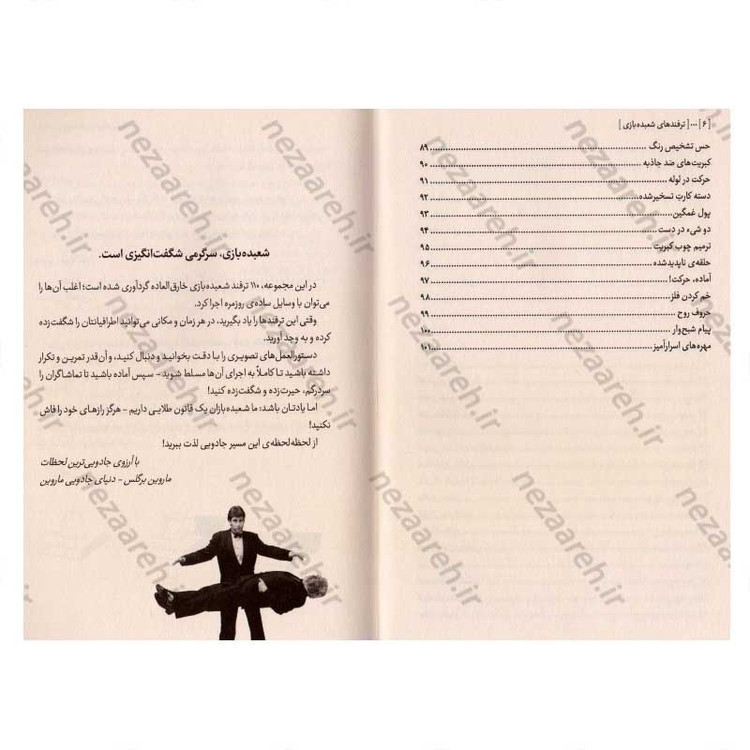 [ ۶ ] ... [ ترفندهای شعبده‌بازی ]
حس تشخیص رنگ ........ ۸۹
کبریت‌های ضد جاذبه ........ ۹۰
حرکت در لوله ........ ۹۱
دسته کارت تسخیرشده ........ ۹۲
پول غمگین ........ ۹۳
دو شیء در دست ........ ۹۴
ترمیم چوب کبریت ........ ۹۵
حلقه‌ی ناپدیدشده ........ ۹۶
آماده، حرکت! ........ ۹۷
خم کردن فلز ........ ۹۸
حروف روح ........ ۹۹
پیام شبح‌وار ........ ۱۰۰
مهره‌های اسرارآمیز ........ ۱۰۱
شعبده‌بازی، سرگرمی شگفت‌انگیزی است.
در این مجموعه، ۱۱۰ ترفند شعبده‌بازی خارق‌العاده گردآوری شده است؛ اغلب آن‌ها را
می‌توان با وسایل ساده‌ی روزمره اجرا کرد.
وقتی این ترفندها را یاد بگیرید، در هر زمان و مکانی می‌توانید اطرافیانتان را شگفت‌زده
کرده و به وجد آورید.
دستورالعمل‌های تصویری را با دقت بخوانید و دنبال کنید، و آن‌قدر تمرین و تکرار
داشته باشید تا کاملاً به اجرای آن‌ها مسلط شوید - سپس آماده باشید تا تماشاگران را
سردرگم، حیرت‌زده و شگفت‌زده کنید!
اما یادتان باشد: ما شعبده‌بازان یک قانون طلایی داریم - هرگز رازهای خود را فاش
نکنید!
از لحظه‌لحظه‌ی این مسیر جادویی لذت ببرید!
با آرزوی جادویی‌ترین لحظات
ماروین برگلس - دنیای جادویی ماروین
nezaareh.ir
nezaareh.ir
nezaareh.ir
nezaareh.ir
nezaareh.ir
nezaareh.ir
nezaareh.ir
nezaareh.ir
nezaareh.ir
nezaareh.ir
nezaareh.ir